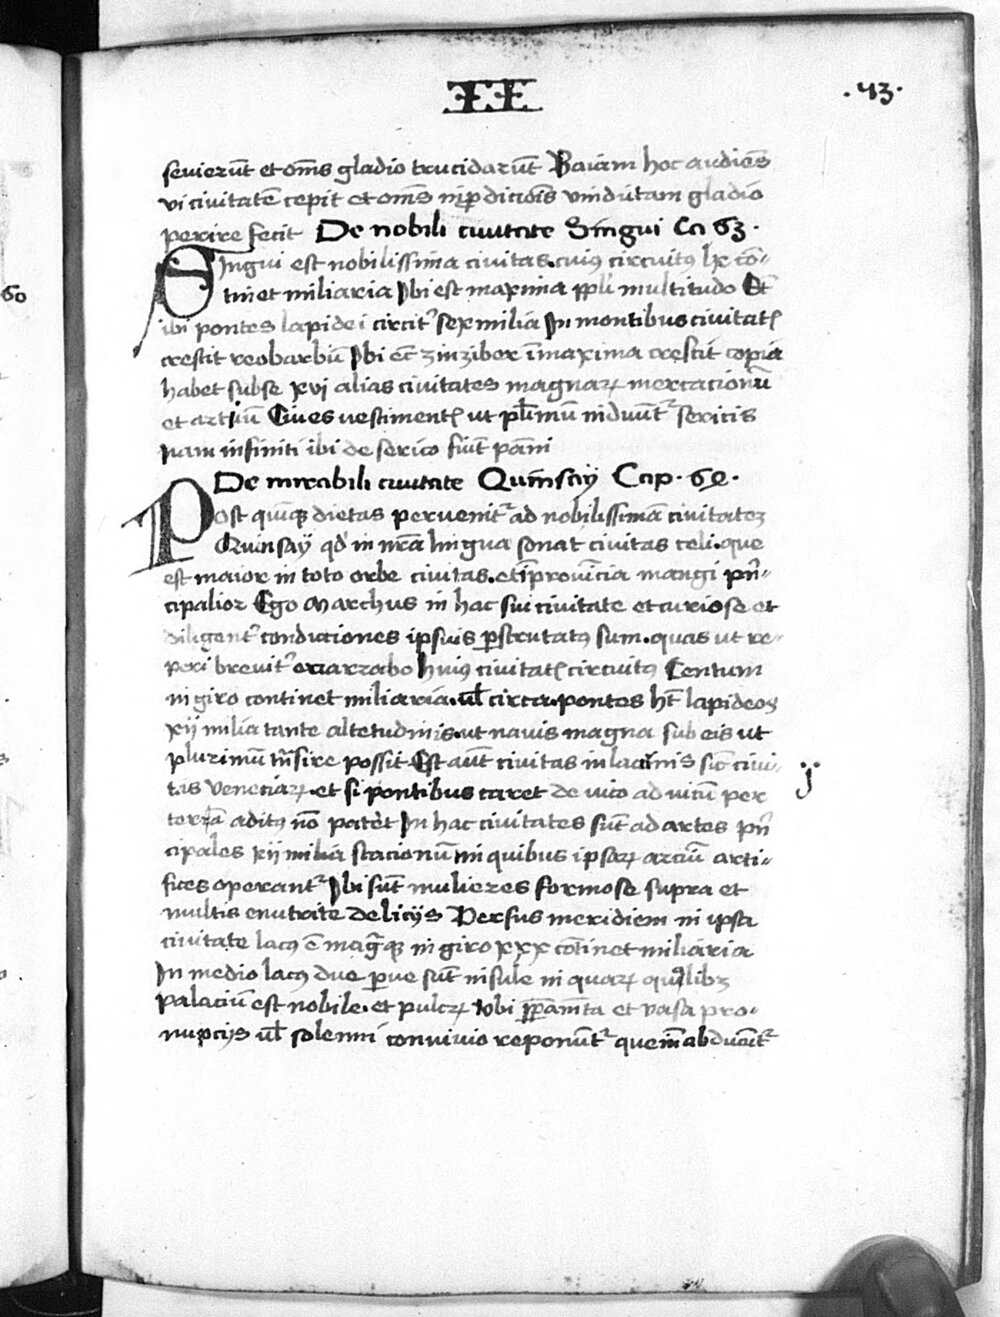 II
.43.
seuierūt et om̄s gladio trucidarūt Baiam hoc audiēs
vi ciuitatē cepit et om̄s in p̄dictōis vindictam gladio
perire fecit De nobili ciuitate Singui Ca 63.
Singui est nobilissima ciuitas.cuiꝰ circuitꝰ lx cō-
tinet miliaria Ibi est maxima ppl̄i multitudo Et
ibi pontes lapidei circit᷑ sex milia In montibus ciuitatꝭ
crescit reobarbū Ibi et zinziber ī maxima crescit copia
habet sub se xvj alias ciuitates magnaꝝ mercacionū
et artiū Ciues vestimentꝭ ut plr̄imū induūt᷑ sericis
nam infiniti ibi de serico fiūt pāni
De mirabili ciuitate Quinsaÿ Cap.64.
Post quinqꝫ dietas peruenit᷑ ad nobilissimā ciuitateꝫ
Quinsaÿ qd̄ in nr̄a lingua sonat ciuitas celi.que
est maior in toto orbe ciuitas.et ī prouīcia mangi prī-
cipalior Ego Marchus in hac fui ciuitate et curiose et
diligent᷑ condiciones ipsius p̱scrutatꝰ sum.quas ut re-
peri breuit᷑ enarrabo huiꝰ ciuitatꝭ circuitꝰ Centum
in giro continet miliaria.ul̄ circa.pontes hꝫ lapideos
xij milia tante altitudinis.ut nauis magna sub eis ut
plurimū trāsire possit Est aūt ciuitas in lacūis sic ciui-
ij
tas Veneciaꝝ.et si pontibus caret de vico ad vicū per
terrā aditꝰ nō patet In hac ciuitates sūt ad artes prī
cipales xij milia stacionū in quibus ipsaꝝ arciū arti-
fices operant᷑ Ibi sūt mulieres formose supra et
multis enutrite delicijs Versus meridiem in ipsa
ciuitate lacꝰ ē magꝰqꝫ in giro xxx cōtinet miliaria
In medio lacꝰ due parue sūt insule in quaꝝ qualibꝫ
palaciū est nobile.et pulcꝝ vbi p̱p̱am̄ta et vasa pro-
nupcijs ul̄ solenni conuiuio reponūt᷑
60